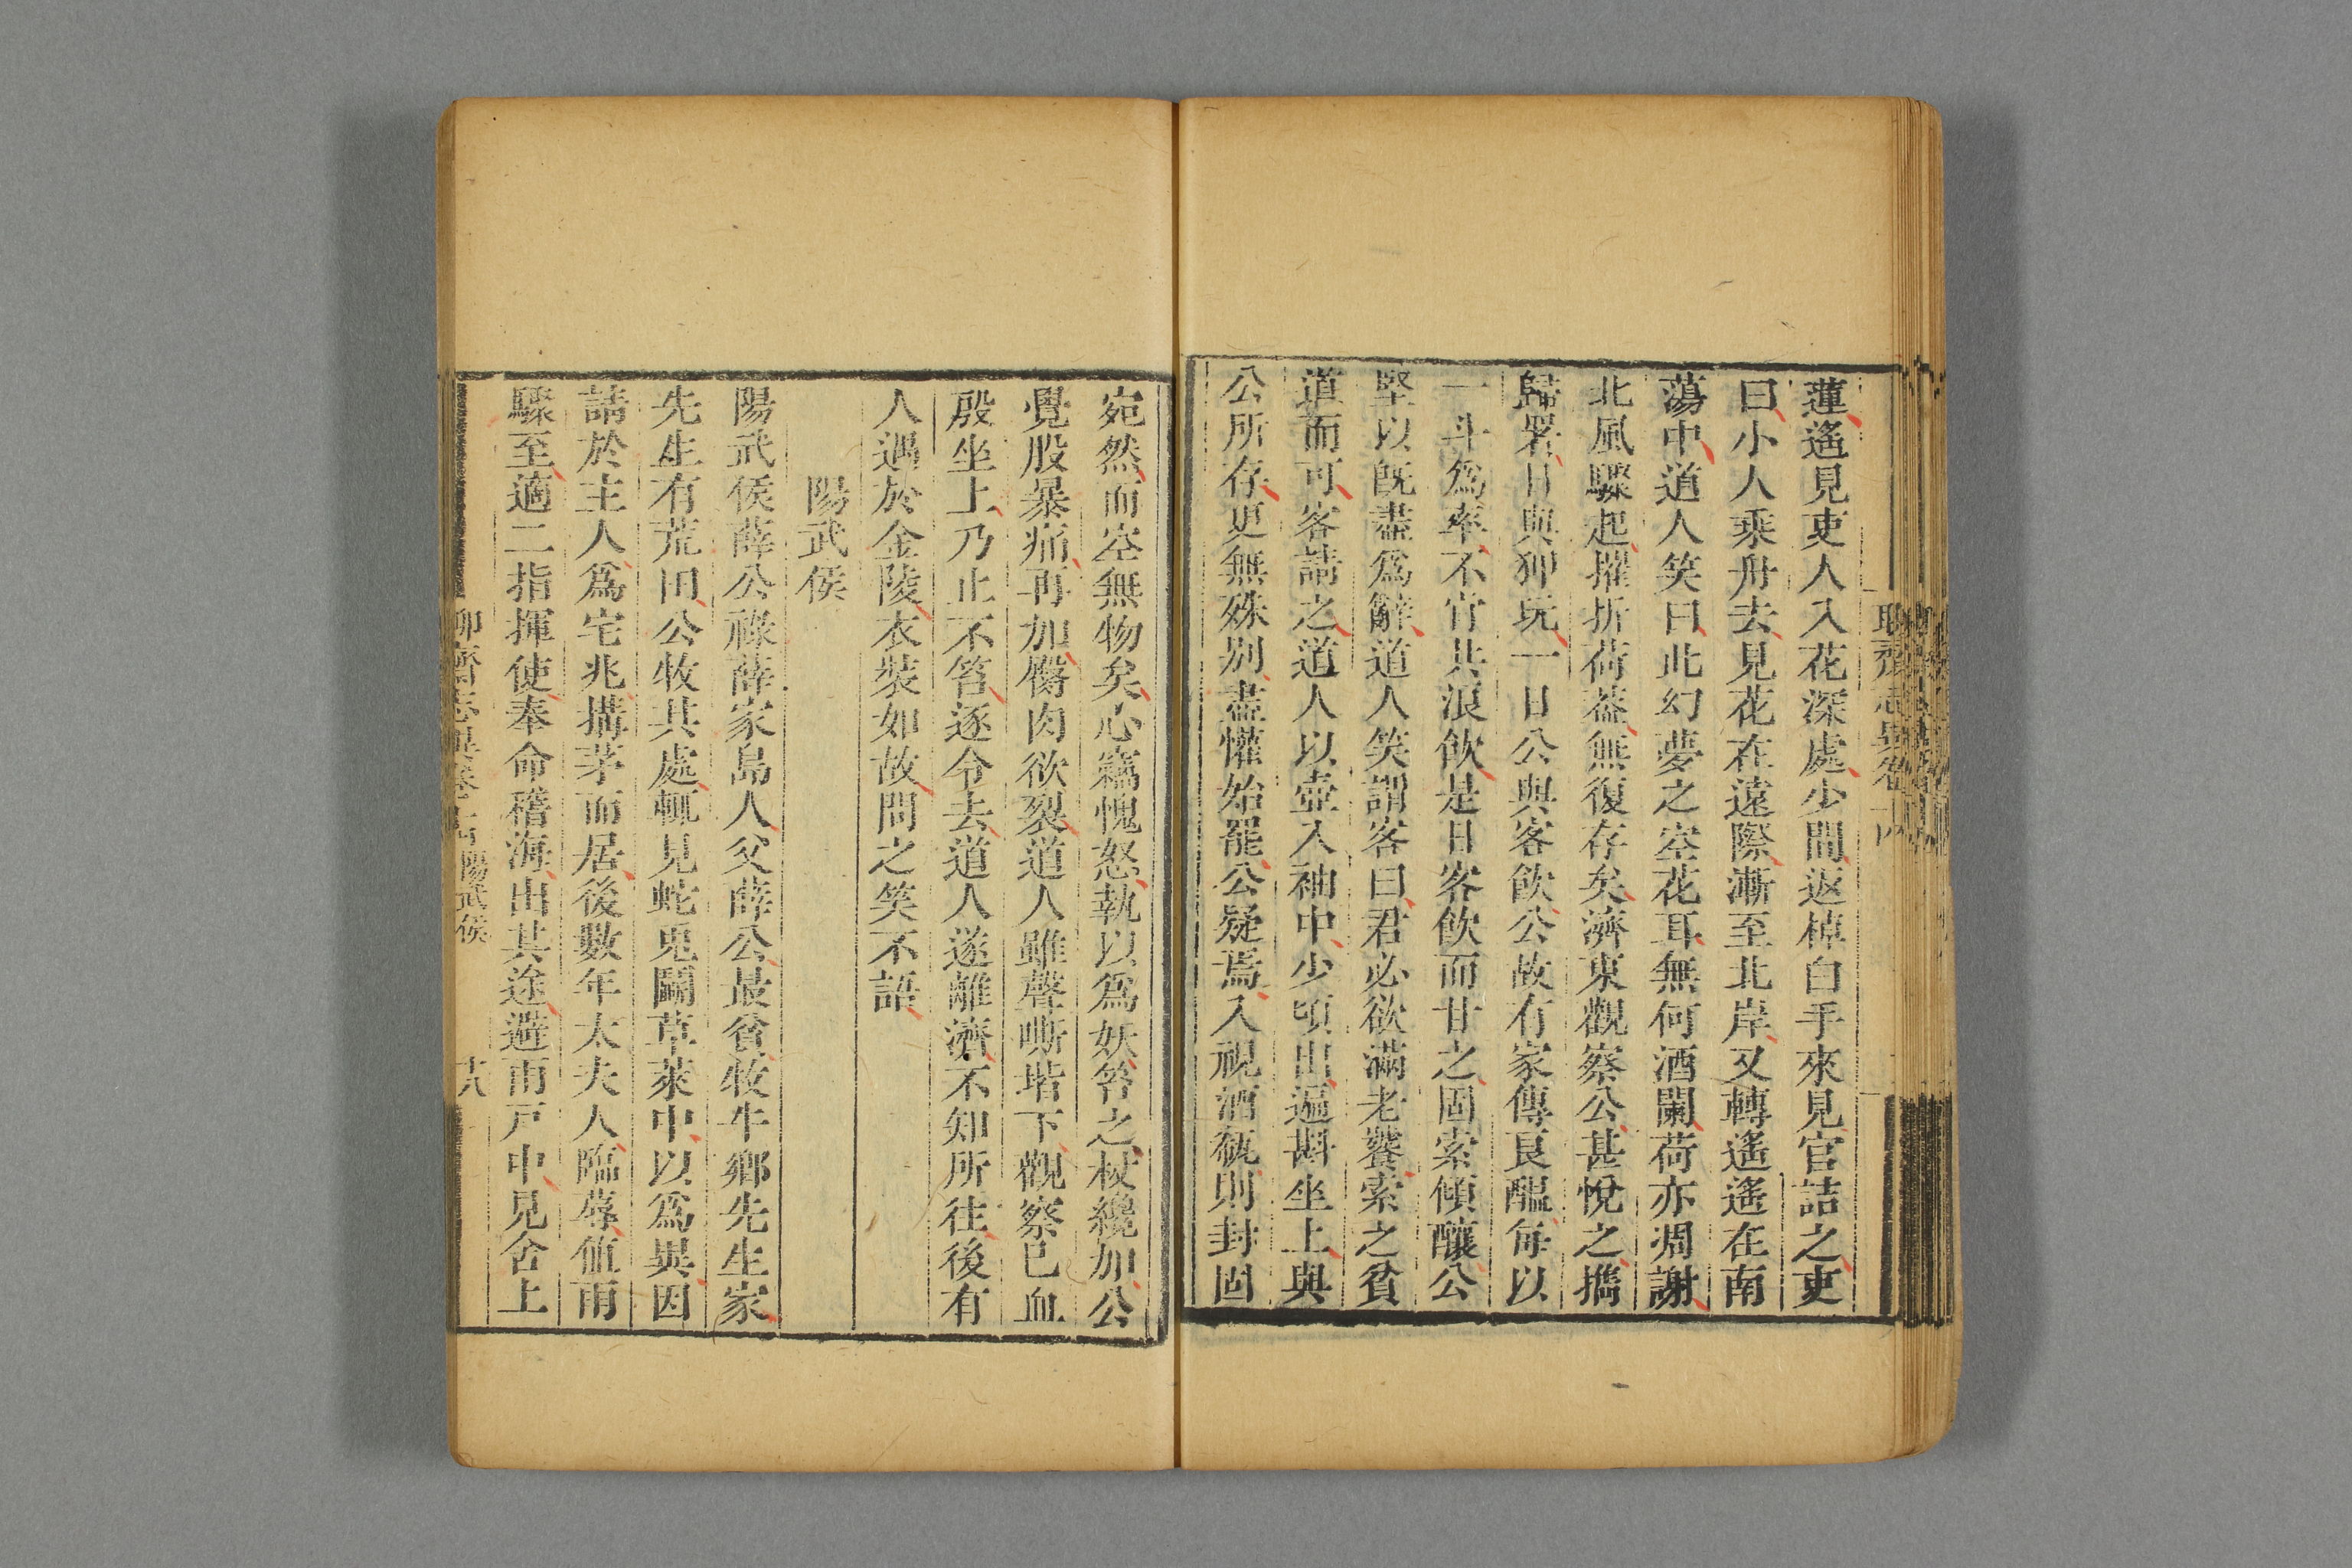 蓮遙見吏人入花深處少間返棹白手來見官詰之吏
曰小人乘舟去見花在遠際漸至北岸又轉遙遙在南
蕩中道人笑曰此幻夢之空花耳無何酒闌荷亦凋謝
北風驟起摧折荷葢無復存矣濟東觀察公甚悅之攜
歸署日與狎玩一日公與客飲公故有家傳良醞每以
一斗爲率不肯共浪飲是日客飲而甘之固索傾釀公
堅以旣盡爲辭道人笑謂客曰君必欲滿老饕索之貧
道而可客請之道人以壺入袖中少頃出遍斟坐上與
公所存更無殊別盡懽始罷公疑焉入視酒瓻則封固
宛然而空無物矣心竊愧怒執以爲妖笞之杖纔加公
覺股暴痛再加臀肉欲裂道人雖聲嘶堦下觀察已血
殷坐上乃止不笞逐令去道人遂離濟不知所往後有
人遇於金陵衣裝如故問之笑不語
陽武侯
陽武侯薛公祿薛家島人父薛公最貧牧牛鄉先生家
先生有荒田公牧其處輒見蛇兎鬭草萊中以爲異因
請於主人爲宅兆搆茅而居後數年太夫人臨蓐值雨
驟至適二指揮使奉命稽海出其途避雨戸中見舍上
聊齋志異卷十四 陽武侯 十八